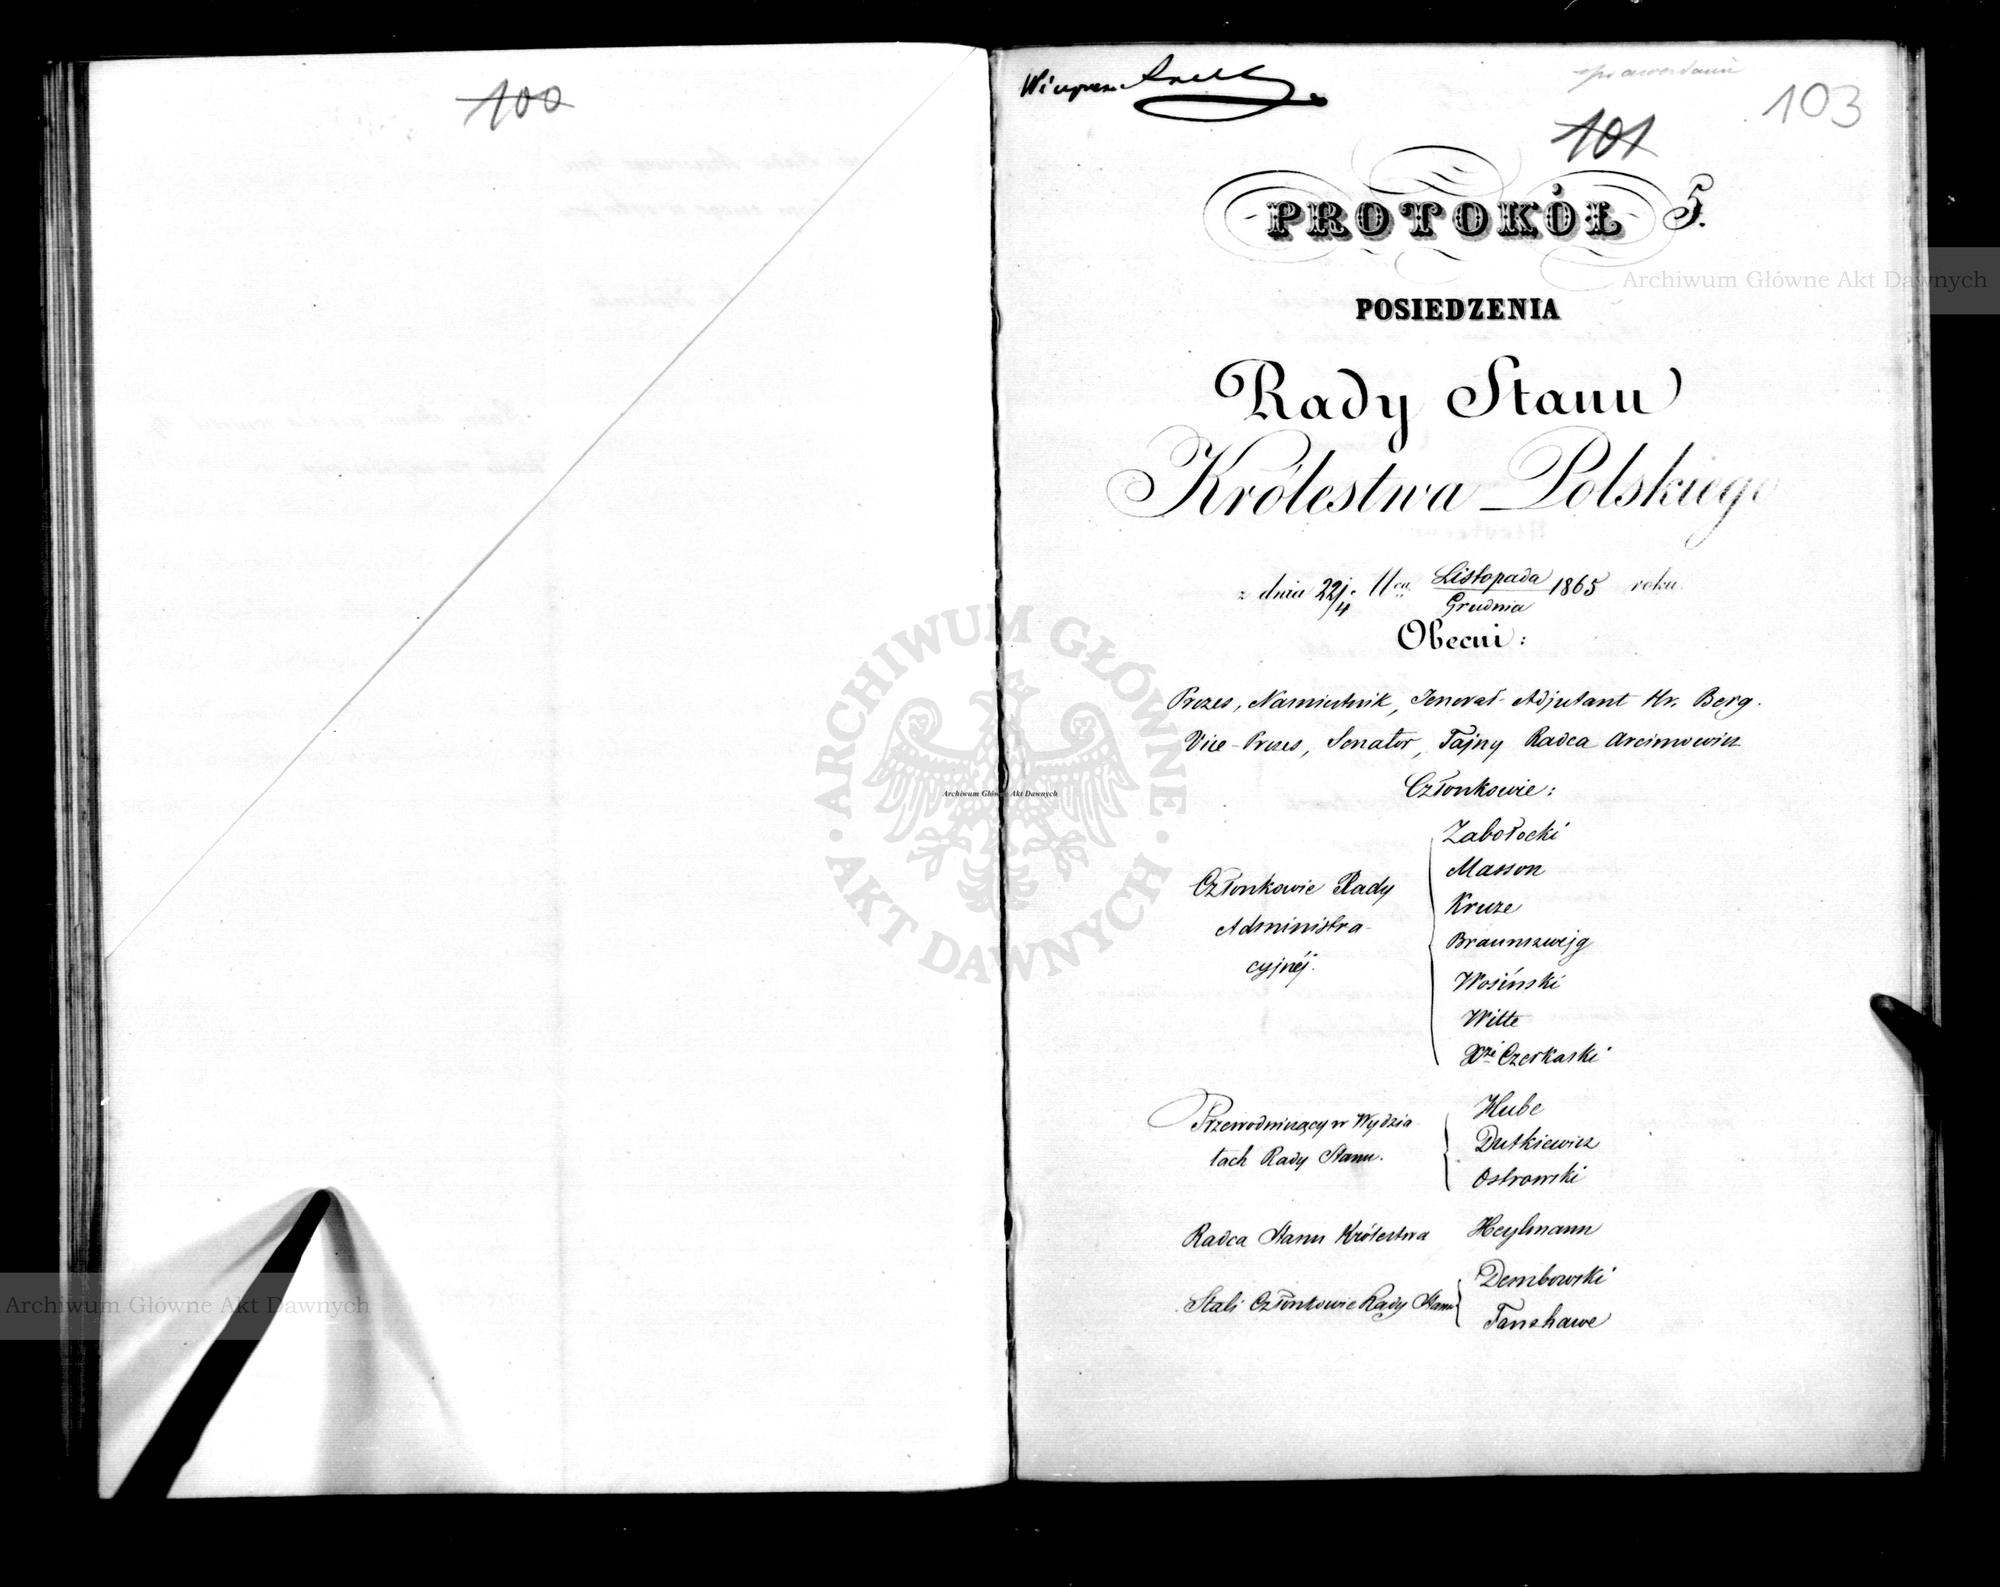 100
Wiceprezes
103
101
PROTOKÓŁ 5.
POSIEDZENIA
Rady Stanu
Królestwa Polskiego
z dnia 22/4 Mca Listopada/Grudnia 1865 roku.
Obecni:
Prezes, Namiestnik, Jenerał-Adjutant Hr. Berg.
Vice-Prezes, Senator, Tajny Radca Arcimowicz
Członkowie:
Członkowie Rady
Administra-
cyjnéj.
Zabołocki
Masson
Kruze
Braunszwejg
Wosiński
Witte
Xże Czerkaski
Przewodniczący w Wydzia-
łach Rady Stanu.
Hube
Dutkiewicz
Ostrowski
Radca Stanu Królestwa Heylmann
Stali Członkowie Rady Stanu
Dembowski
Fanshawe
Archiwum Główne Akt Dawnych
ARCHIWUM GŁÓWNE · AKT DAWNYCH ·
Archiwum Główne Akt Dawnych
Archiwum Główne Akt Dawnych